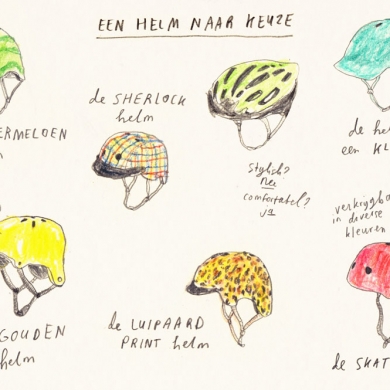 EEN HELM NAAR KEUZE
de SHERLOCK
helm
ERMELOEN
stylish?
nee
comfortabel?
ja
de he
een KL
verkrijgba
in diverse
kleuren
GOUDEN
helm
de LUIPAARD
PRINT helm
de SKAT